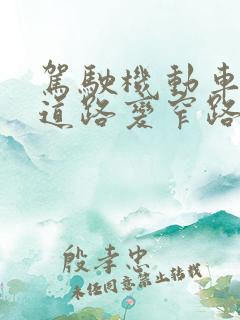 駕駛機動車
道路變窄路
殷孝忠
未经同意禁止转载